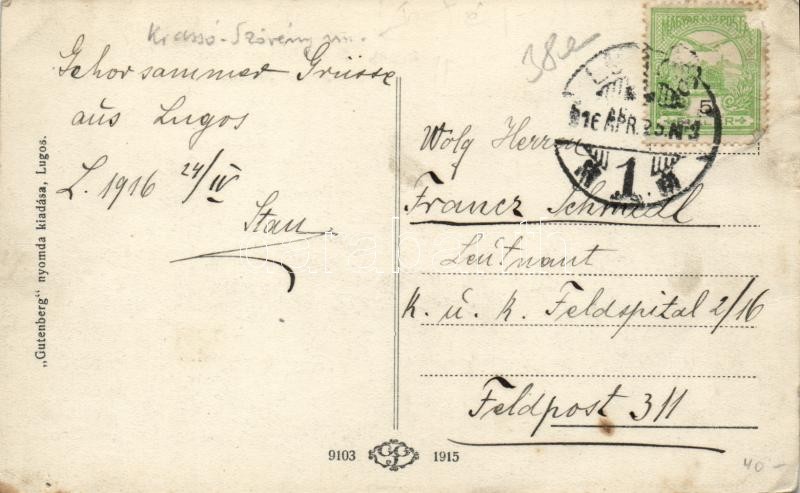 Krassó-Szörény vm.
38e
Gehorsammer Grüsse
aus Lugos
L. 1916 24/IV
Stau
„Gutenberg“ nyomda kiadása, Lugos.
MAGYAR KIR. POSTA
5
916 APR. 25.
1
Wolg Herren
Francz Schmidl
Leutnant
K. u. K. Feldspital 2/16
Feldpost 311
9103 1915
40-